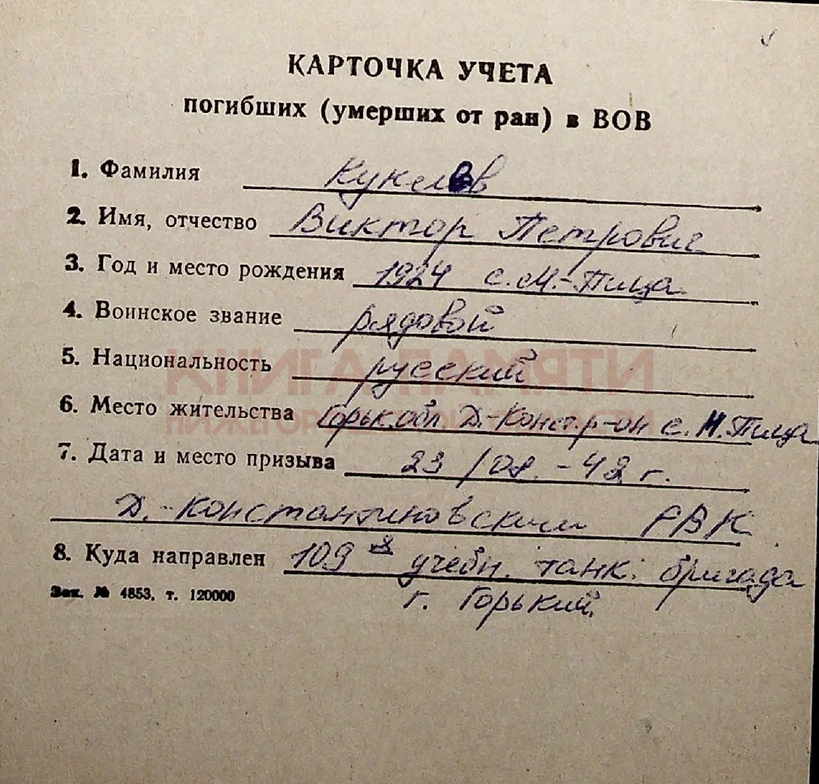 КАРТОЧКА УЧЕТА
погибших (умерших от ран) в ВОВ
1. Фамилия Куклёв
2. Имя, отчество Виктор Петрович
3. Год и место рождения 1924 с. М.-Пица
4. Воинское звание рядовой
КНИГА ПАМЯТИ
5. Национальность русский
НИЖЕГОРОДСКОЙ ОБЛАСТИ
6. Место жительства Горьк обл Д-Конст. р-он с. М. Пица
7. Дата и место призыва 23/08.-42 г.
Д.-Константиновским РВК
8. Куда направлен 109я учебн. танк. бригада
Зак. № 4853, т. 120000 г. Горький